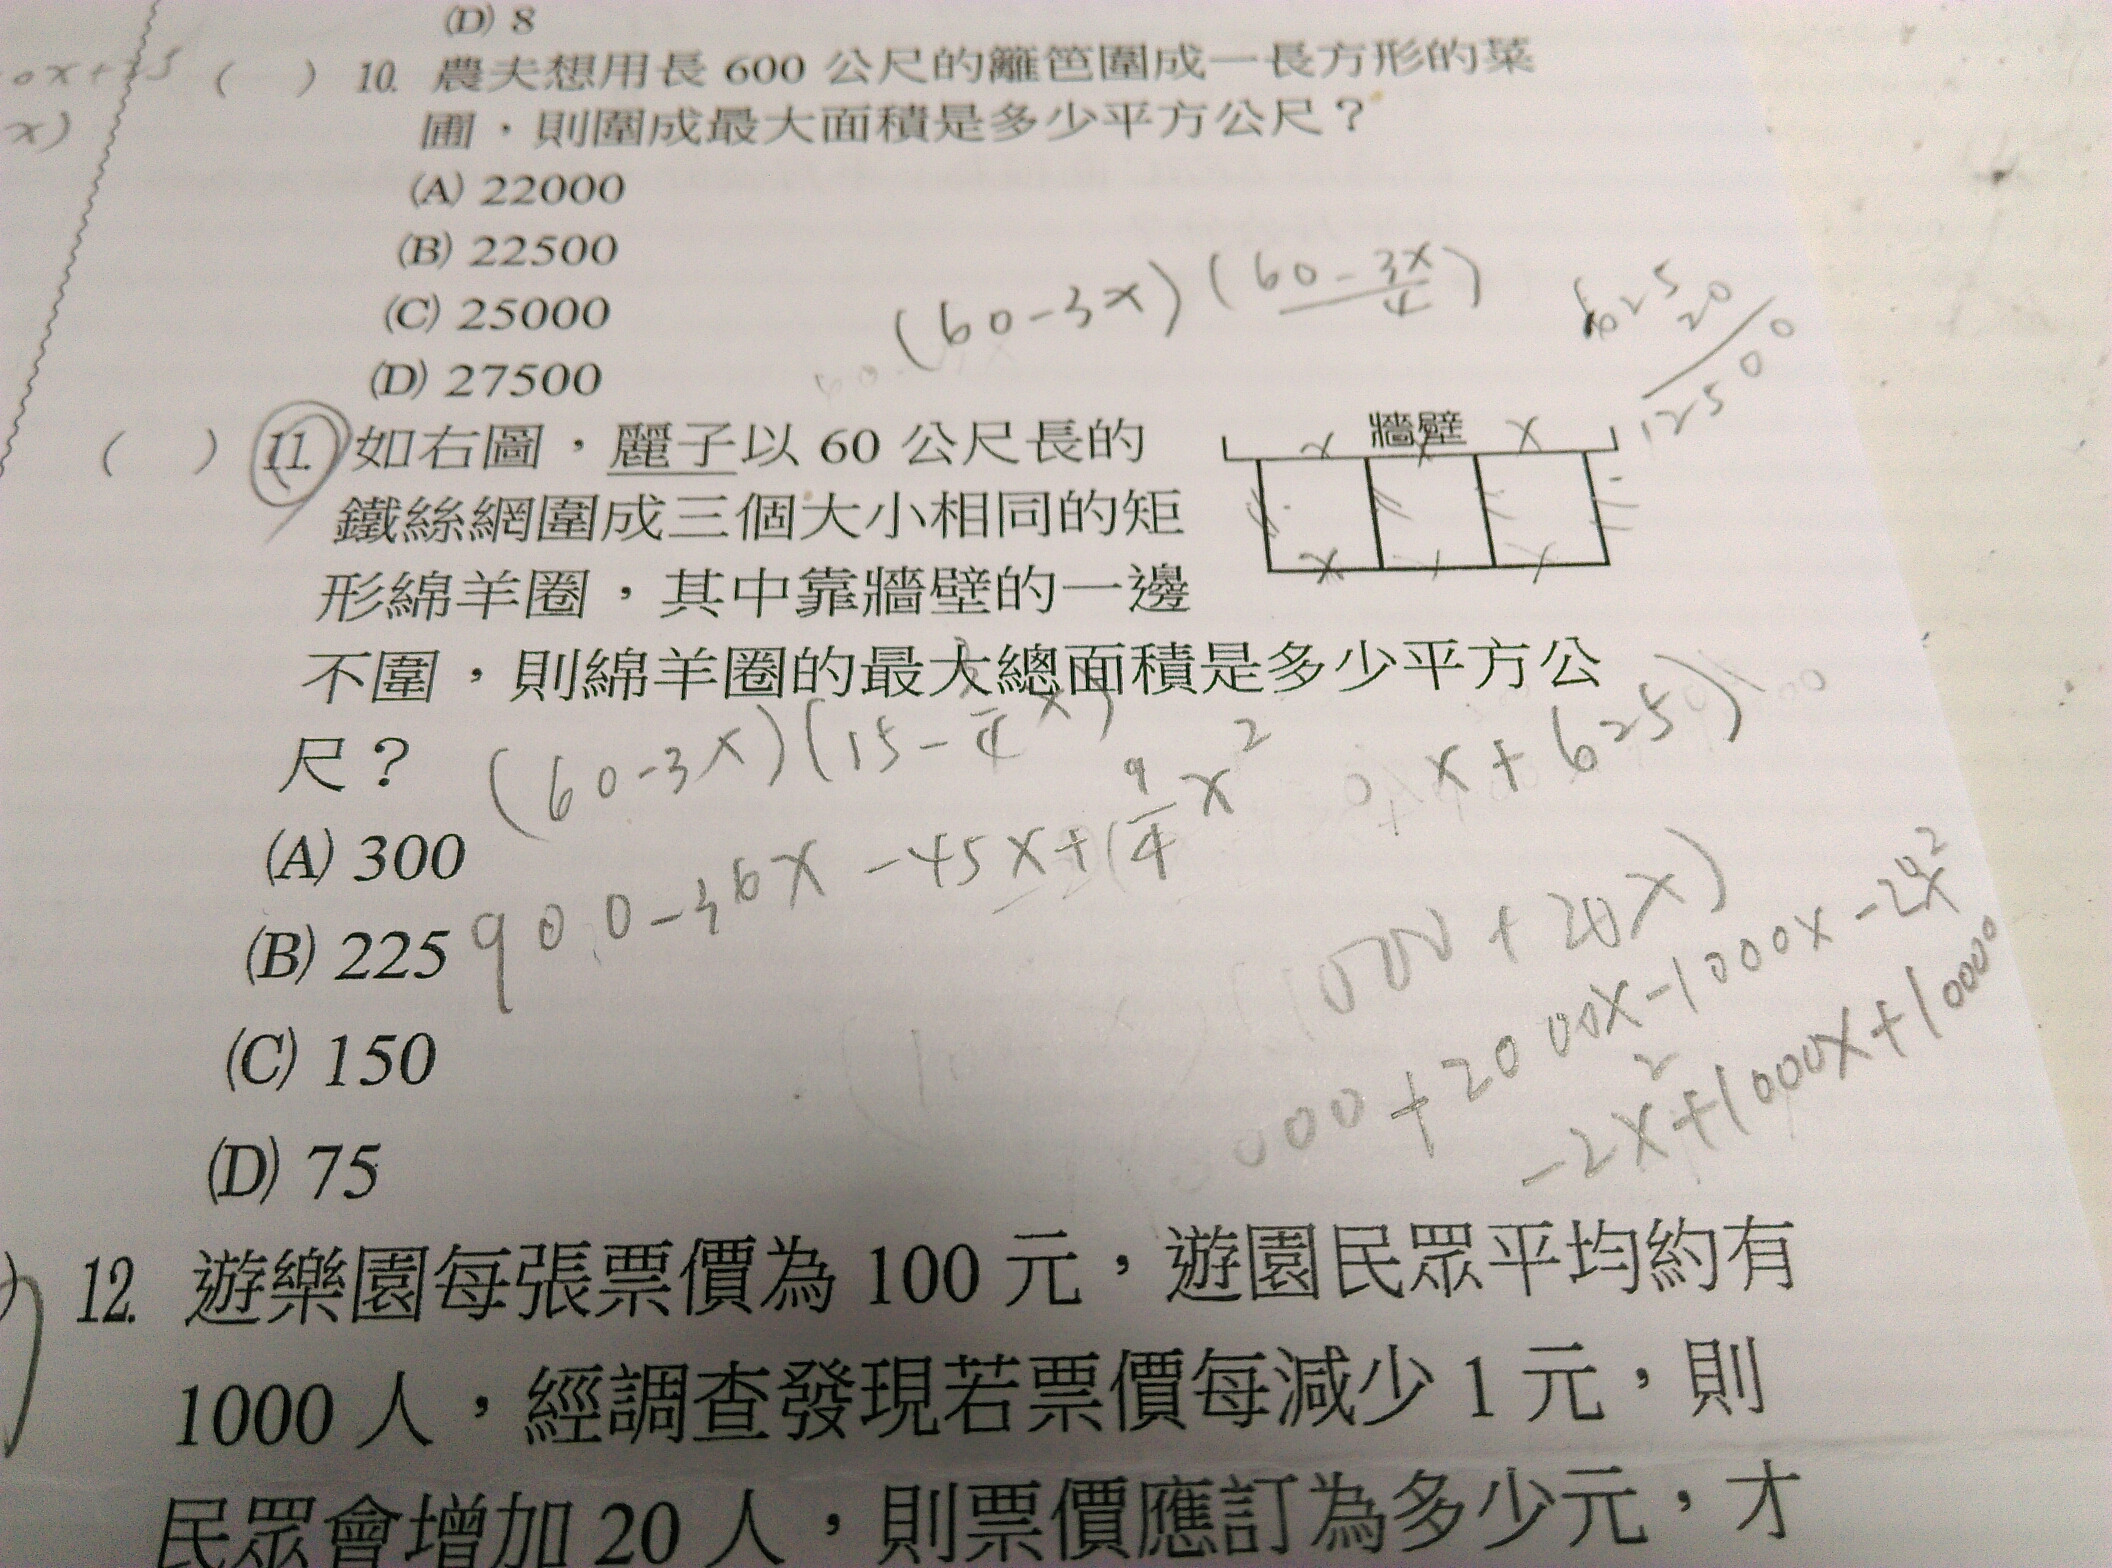 (D) 8
( ) 10. 農夫想用長 600 公尺的籬笆圍成一長方形的菜
圃，則圍成最大面積是多少平方公尺？
(A) 22000
(B) 22500
(C) 25000
(D) 27500
(60-3x)(60-3x/4)
625
20
12500
( ) 11. 如右圖，麗子以 60 公尺長的
鐵絲網圍成三個大小相同的矩
形綿羊圈，其中靠牆壁的一邊
不圍，則綿羊圈的最大總面積是多少平方公
尺？
牆壁
x x
x x
(60-3x)(15-3/4x)
x+625)
(A) 300
900-36x-45x+9/4x²
(B) 225
(C) 150
(D) 75
1000+20x)
000+2000x-1000x-20x²
-2x²+1000x+10000
12. 遊樂園每張票價為 100 元，遊園民眾平均約有
1000 人，經調查發現若票價每減少 1 元，則
民眾會增加 20 人，則票價應訂為多少元，才